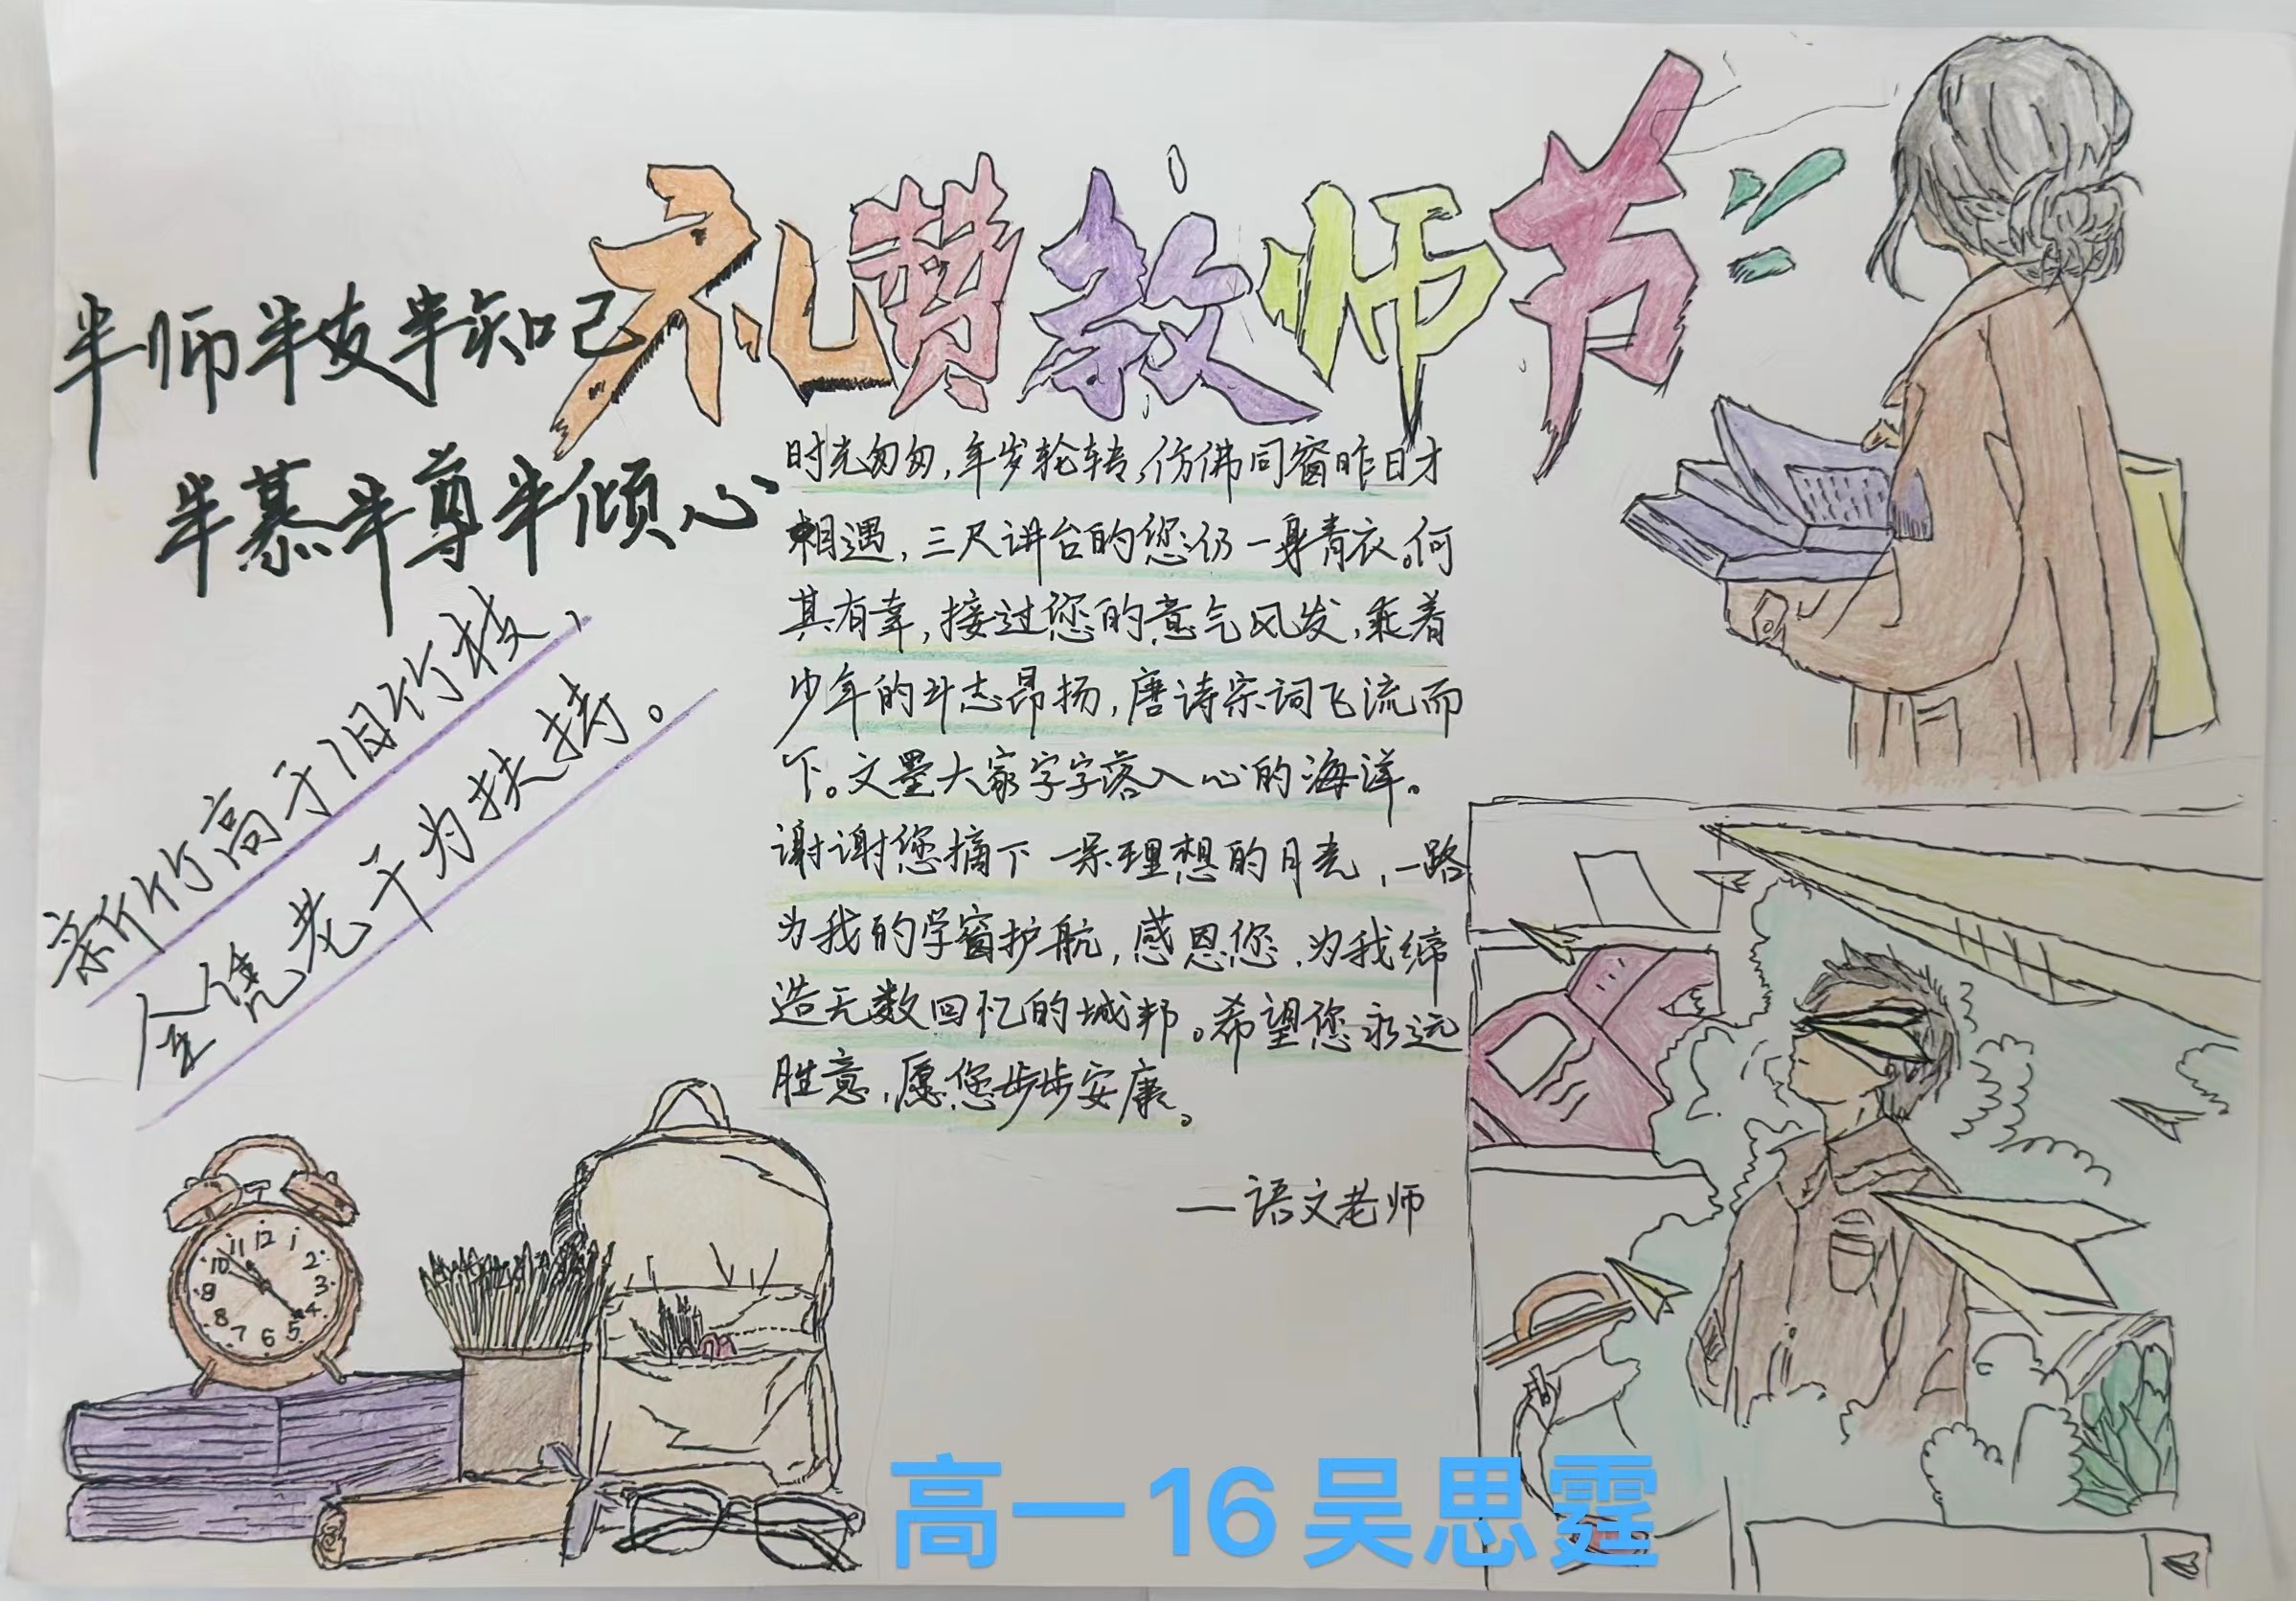 礼赞教师节
半师半友半知己
半慕半尊半倾心
新竹高于旧竹枝，
全凭老干为扶持。
时光匆匆，年岁轮转，仿佛同窗昨日才
相遇，三尺讲台的您仍一身青衣。何
其有幸，接过您的意气风发，乘着
少年的斗志昂扬，唐诗宗词飞流而
下。文墨大家字字落入心的海洋。
谢谢您摘下一朵理想的月亮，一路
为我的学窗护航，感恩您，为我缔
造无数回忆的城邦。希望您永远
胜意，愿您步步安康。
——语文老师
11 12 1
10 2
9 3
8 4
7 6 5
高一16吴思霆